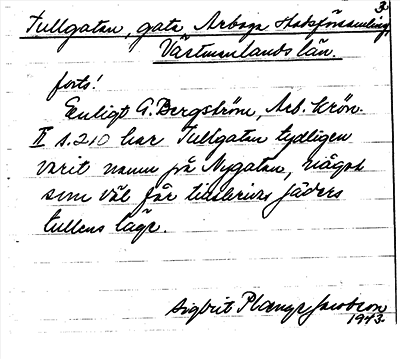 3.
Tullgatan, gata Arboga Stadsförsamling,
Västmanlands län.
forts!
Enligt G. Bergström, Arb. krön.
II s. 210 har Tullgatan tydligen
varit namn på Nygatan, något
som väl får tillskrivas Jäders
tullens läge.
Sigbrit Plænge Jacobson
1943.